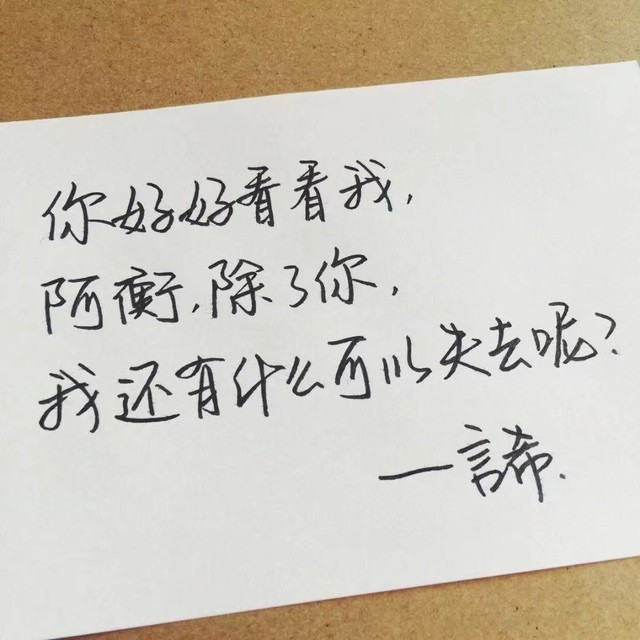 你好好看看我，
阿衡，除了你，
我还有什么可以失去呢？
—言希.